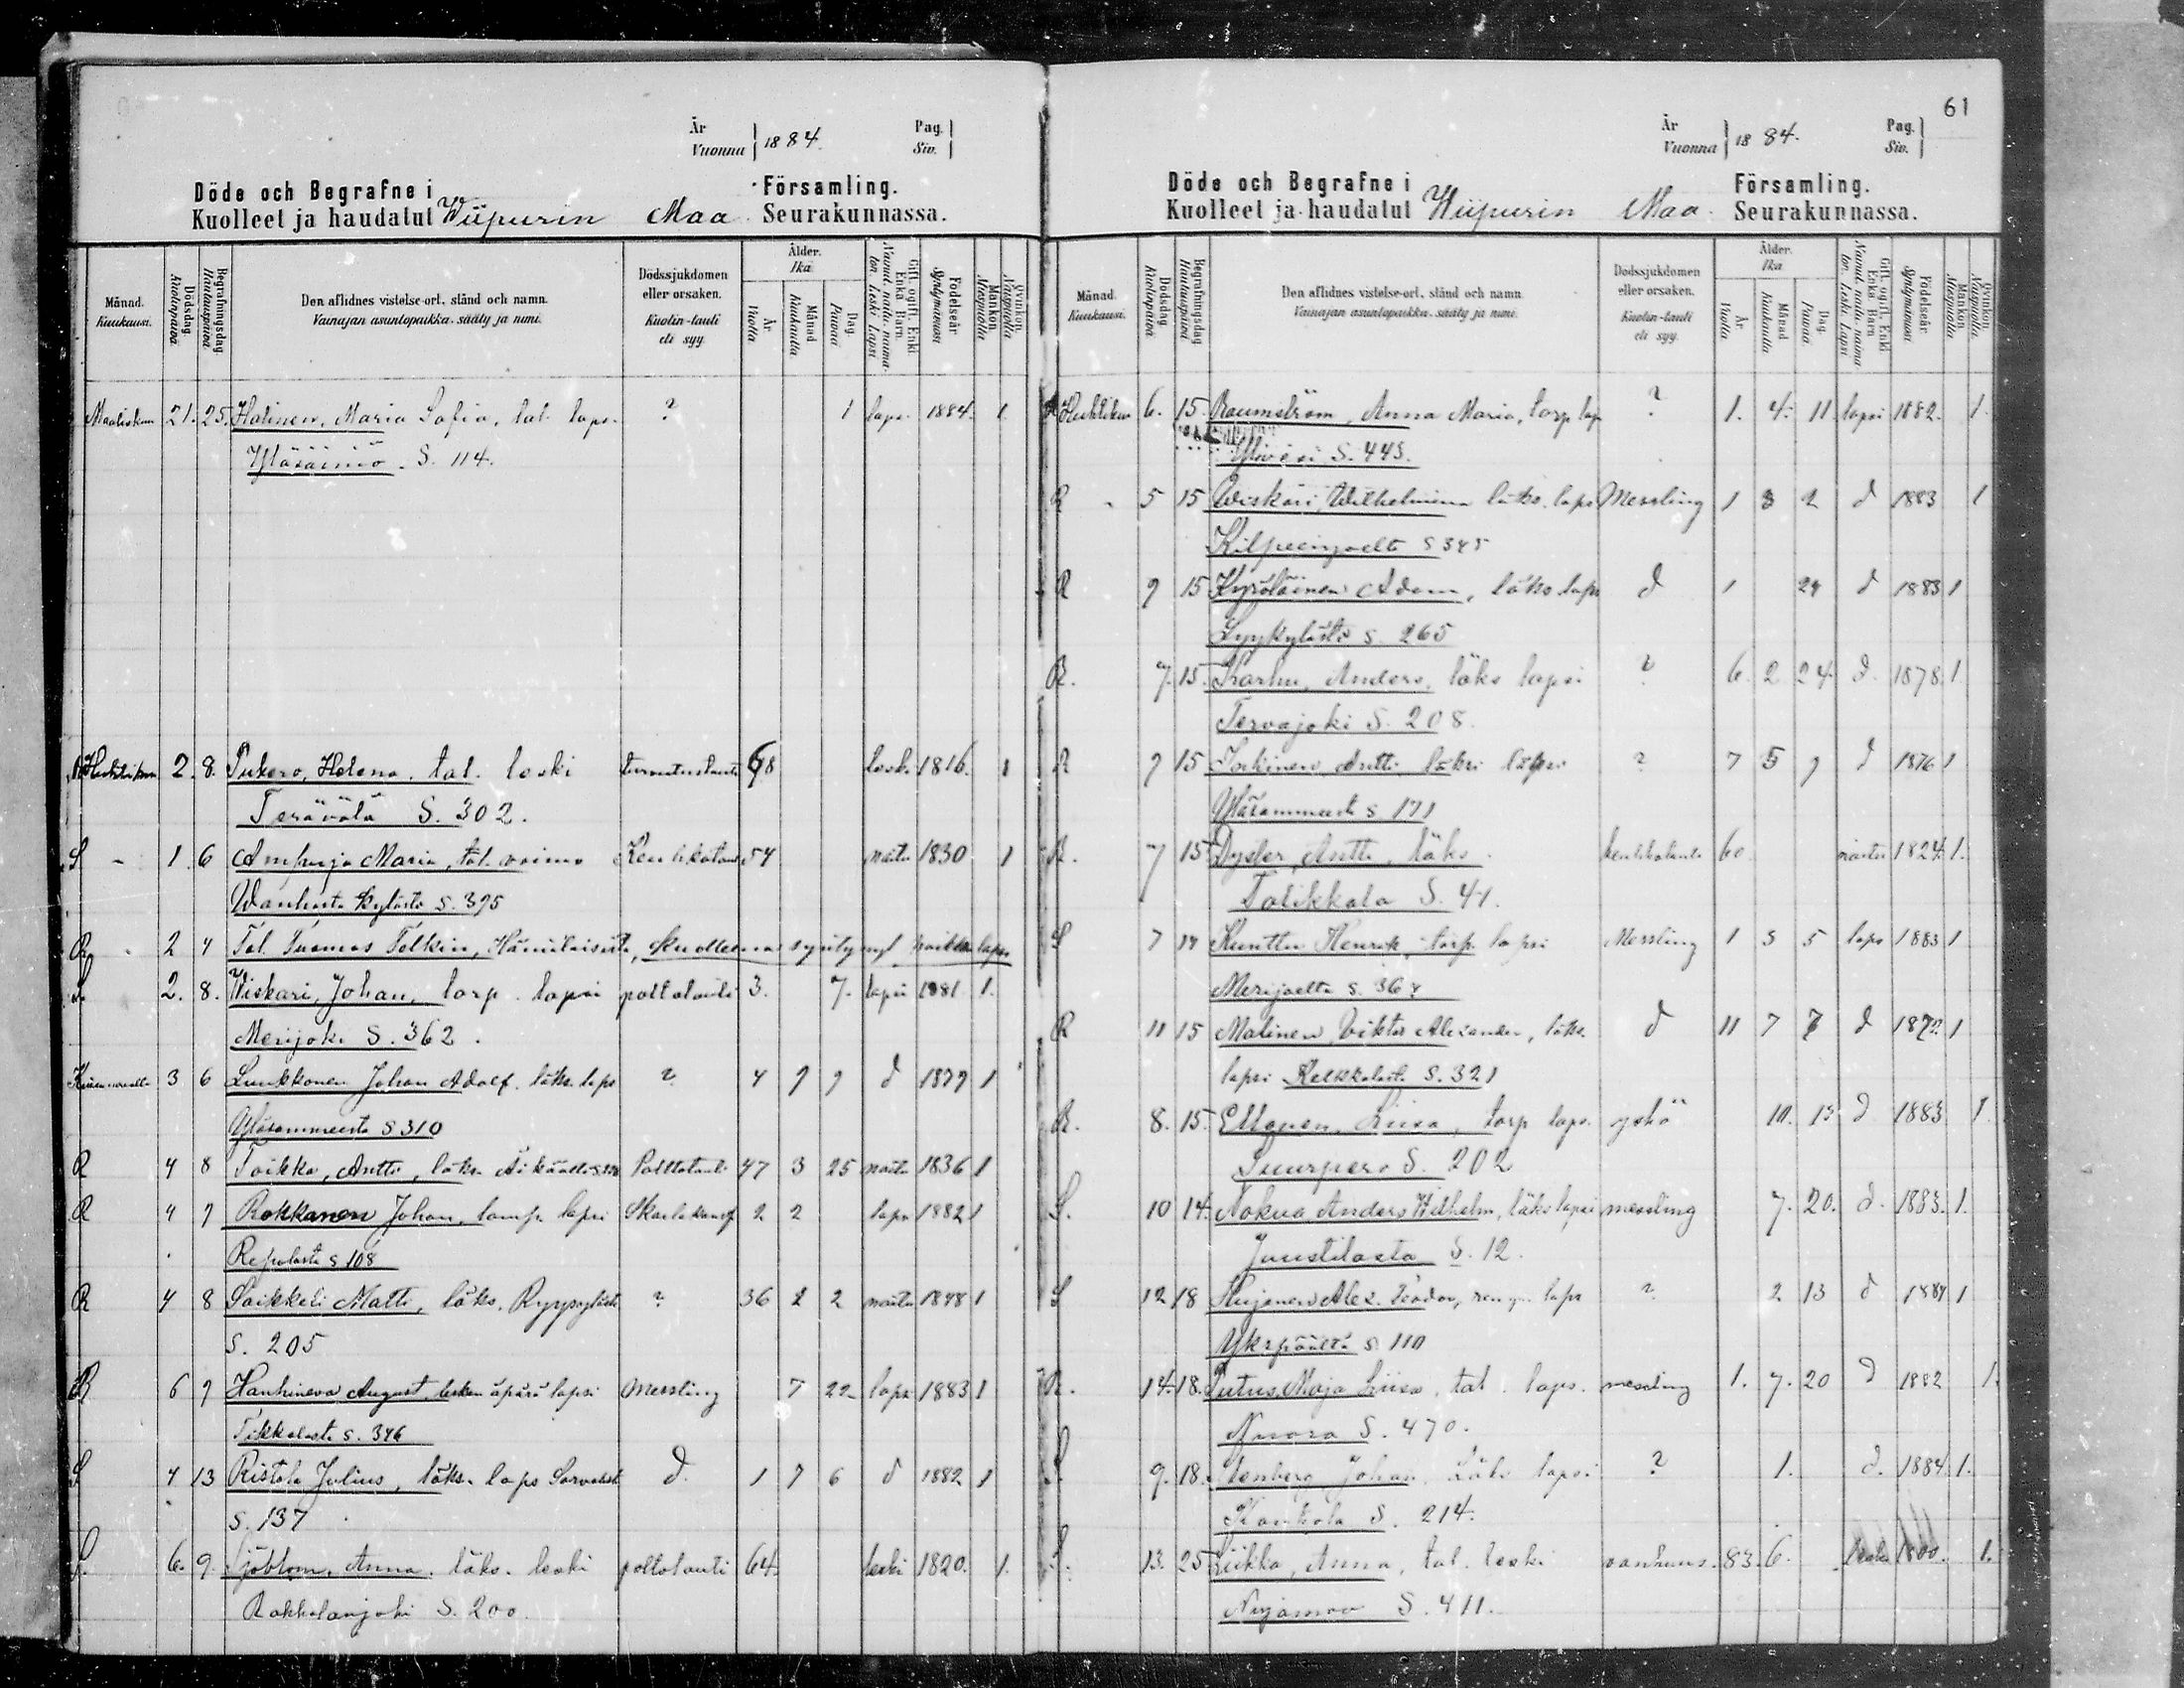 År
Vuonna 1884. Pag.
Siv.
Döde och Begrafne i Församling.
Kuolleet ja haudatut Wiipurin Maa Seurakunnassa.
Månad. Kuukausi. Dödsdag. Kuolinpäivä Begrafningsdag. Hautauspäivä Den aflidnes vistelse-ort, stånd och namn. Vainajan asuntopaikka, sääty ja nimi. Dödssjukdomen eller orsaken. Kuolin-tauti eli syy. Ålder. Ikä. År. Vuotta Månad Kuukautta Dag. Päivää Gift, ogift, Enkl. Enka Barn. Nainut, naima-ton, Leski, Lapsi. Födelseår. Syntymävuosi Mankön. Miespuolia Qvinkön. Vaimopuolia
Maaliskuu 21. 25. Halinen, Maria Sofia, tal. laps. ? 1 laps. 1884. 1.
Yläsäiniö. S. 114.
Huhtikuu 2. 8. Pukero, Helena, tal. leski 68 leski 1816. 1
Terävälä S. 302.
S - 1 6 Ampuja Maria, tal. vaimo 54 naitu 1830 1
Wanhasta kylästä S. 395
R 2 4 Tal. Tuomas Tolkin, kuolleena syntynyt poikalapsi
S. 2. 8. Wiskari, Johan, torp. lapsi polttotauti 3. 7. lapsi 1881. 1.
Merijoki S. 362.
3 6 Lunkkonen Johan Adolf, läks. laps ? 4 9 9 d 1879 1
Yläsommeesta S 310
R 4 8 Toikka, Antti, läks. Polttotauti 47 3 25 naitu 1836 1
R 4 7 Rokkanen Johan, lamp. lapsi 2 2 laps 1882 1
Repolasta S 108
R 4 8 Saikkeli Matti, läks. ? 36 2 2 naitu 1848 1
S. 205
R 6 9 Hanhineva August, lesken äpärä lapsi Messling 7 22 laps 1883 1
Tikkalasta S. 346
S 4 13 Ristola Julius, läks. laps d. 1 7 6 d 1882 1
S. 137
S. 6. 9. Sjöblom, Anna, läks. leski polttotauti 64. leski 1820. 1.
Rakkolanjoki S. 200.
61
År
Vuonna 1884. Pag.
Siv.
Döde och Begrafne i Församling.
Kuolleet ja haudatut Wiipurin Maa Seurakunnassa.
Månad. Kuukausi. Dödsdag. Kuolinpäivä Begrafningsdag Hautauspäivä Den aflidnes vistelse-ort, stånd och namn. Vainajan asuntopaikka, sääty ja nimi. Dödssjukdomen eller orsaken. Kuolin-tauti eli syy. Ålder. Ikä. År. Vuotta Månad Kuukautta Dag. Päivää Gift, ogift, Enkl. Enka Barn. Nainut, naima-ton, Leski, Lapsi. Födelseår. Syntymävuosi Mankön. Miespuolia Qvinkön. Vaimopuolia
Huhtikuu 6. 15. Raumström, Anna Maria, torp lap ? 1. 4. 11 lapsi 1882. 1.
Ylivesi S. 443.
R - 5 15 Wiskari, Wilhelmina läks. laps Messling 1 3 2 d 1883 1
Kilpeenjoelta S 345
R 9 15 Kyröläinen Adam, läks. laps d 1 24 d 1883 1
Lyykylästä S. 265
R. 7. 15. Karhu, Anders, läks lapsi ? 6. 2 24. d. 1878. 1.
Tervajoki S. 208.
R 9 15 Antti läksi lapsi ? 7 5 9 d 1876 1
Yläsommeesta S 171
R. 7 15 Dysler, Antti, läks. keuhkotauti 60. naitu 1824. 1.
Talikkala S. 41.
S 7 14 Kunttu Henrik, torp. lapsi Messling 1 3 5 laps 1883 1
Merijoelta S.
R 11 15 Matinen Viktor Alexander, läks. d 11 7 7 d 1872 1
lapsi Kelkkalasta S. 321
R. 8. 15. Ellonen, Liisa, torp laps. yskä 10. 13 d 1883 1.
Suurpero S. 202
S. 10 14. Nokua Anders Wilhelm, läks lapsi messling 7. 20. d. 1883. 1.
Juustilasta S. 12.
S 12 18 Kujanen Alex. Teodor, laps ? 2 13 d 1884 1
Ykspäältä S. 110
R. 14. 18. Putus, Maja Liisa, tal. laps. messling 1. 7. 20 d 1882 1.
Nuora S. 470.
S 9. 18. Stenberg Johan Läks lapsi ? 1. d. 1884. 1.
Karkola S. 214.
S. 13. 25 Liikka, Anna, tal. leski vanhuus. 83. 6. leski 1800. 1.
S. 411.